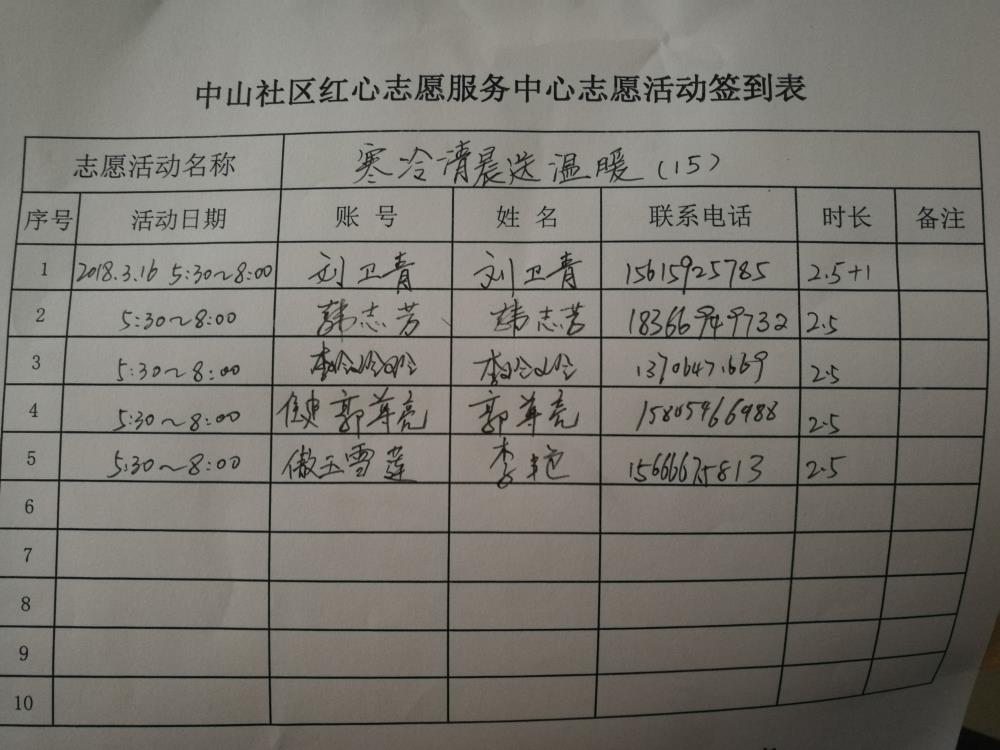 中山社区红心志愿服务中心志愿活动签到表
志愿活动名称 寒冷清晨送温暖(15)
序号 活动日期 账号 姓名 联系电话 时长 备注
1 2018.3.16 5:30~8:00 刘卫青 刘卫青 15615925785 2.5+1
2 5:30~8:00 韩志芳 韩志芳 18366949732 2.5
3 5:30~8:00 2.5
4 5:30~8:00 郭尊亮 郭尊亮 2.5
5 5:30~8:00 傲玉雪莲 李艳 15666675813 2.5
6
7
8
9
10